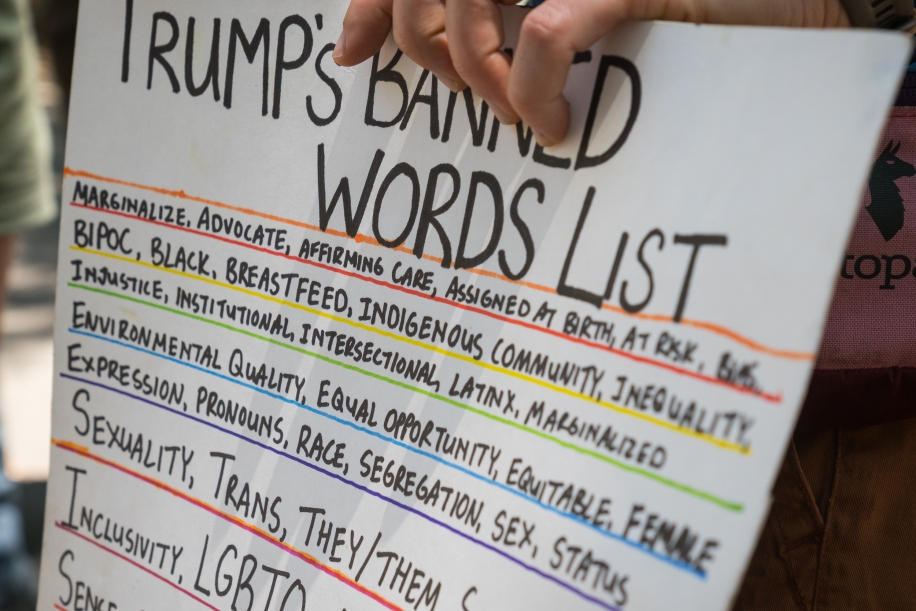 TRUMP'S BANNED
WORDS LIST
MARGINALIZE, ADVOCATE, AFFIRMING CARE, ASSIGNED AT BIRTH, AT RISK, BIAS,
BIPOC, BLACK, BREASTFEED, INDIGENOUS COMMUNITY, INEQUALITY,
INJUSTICE, INSTITUTIONAL, INTERSECTIONAL, LATINX, MARGINALIZED
ENVIRONMENTAL QUALITY, EQUAL OPPORTUNITY, EQUITABLE, FEMALE
EXPRESSION, PRONOUNS, RACE, SEGREGATION, SEX, STATUS
SEXUALITY, TRANS, THEY/THEM
INCLUSIVITY, LGBTQ
topa